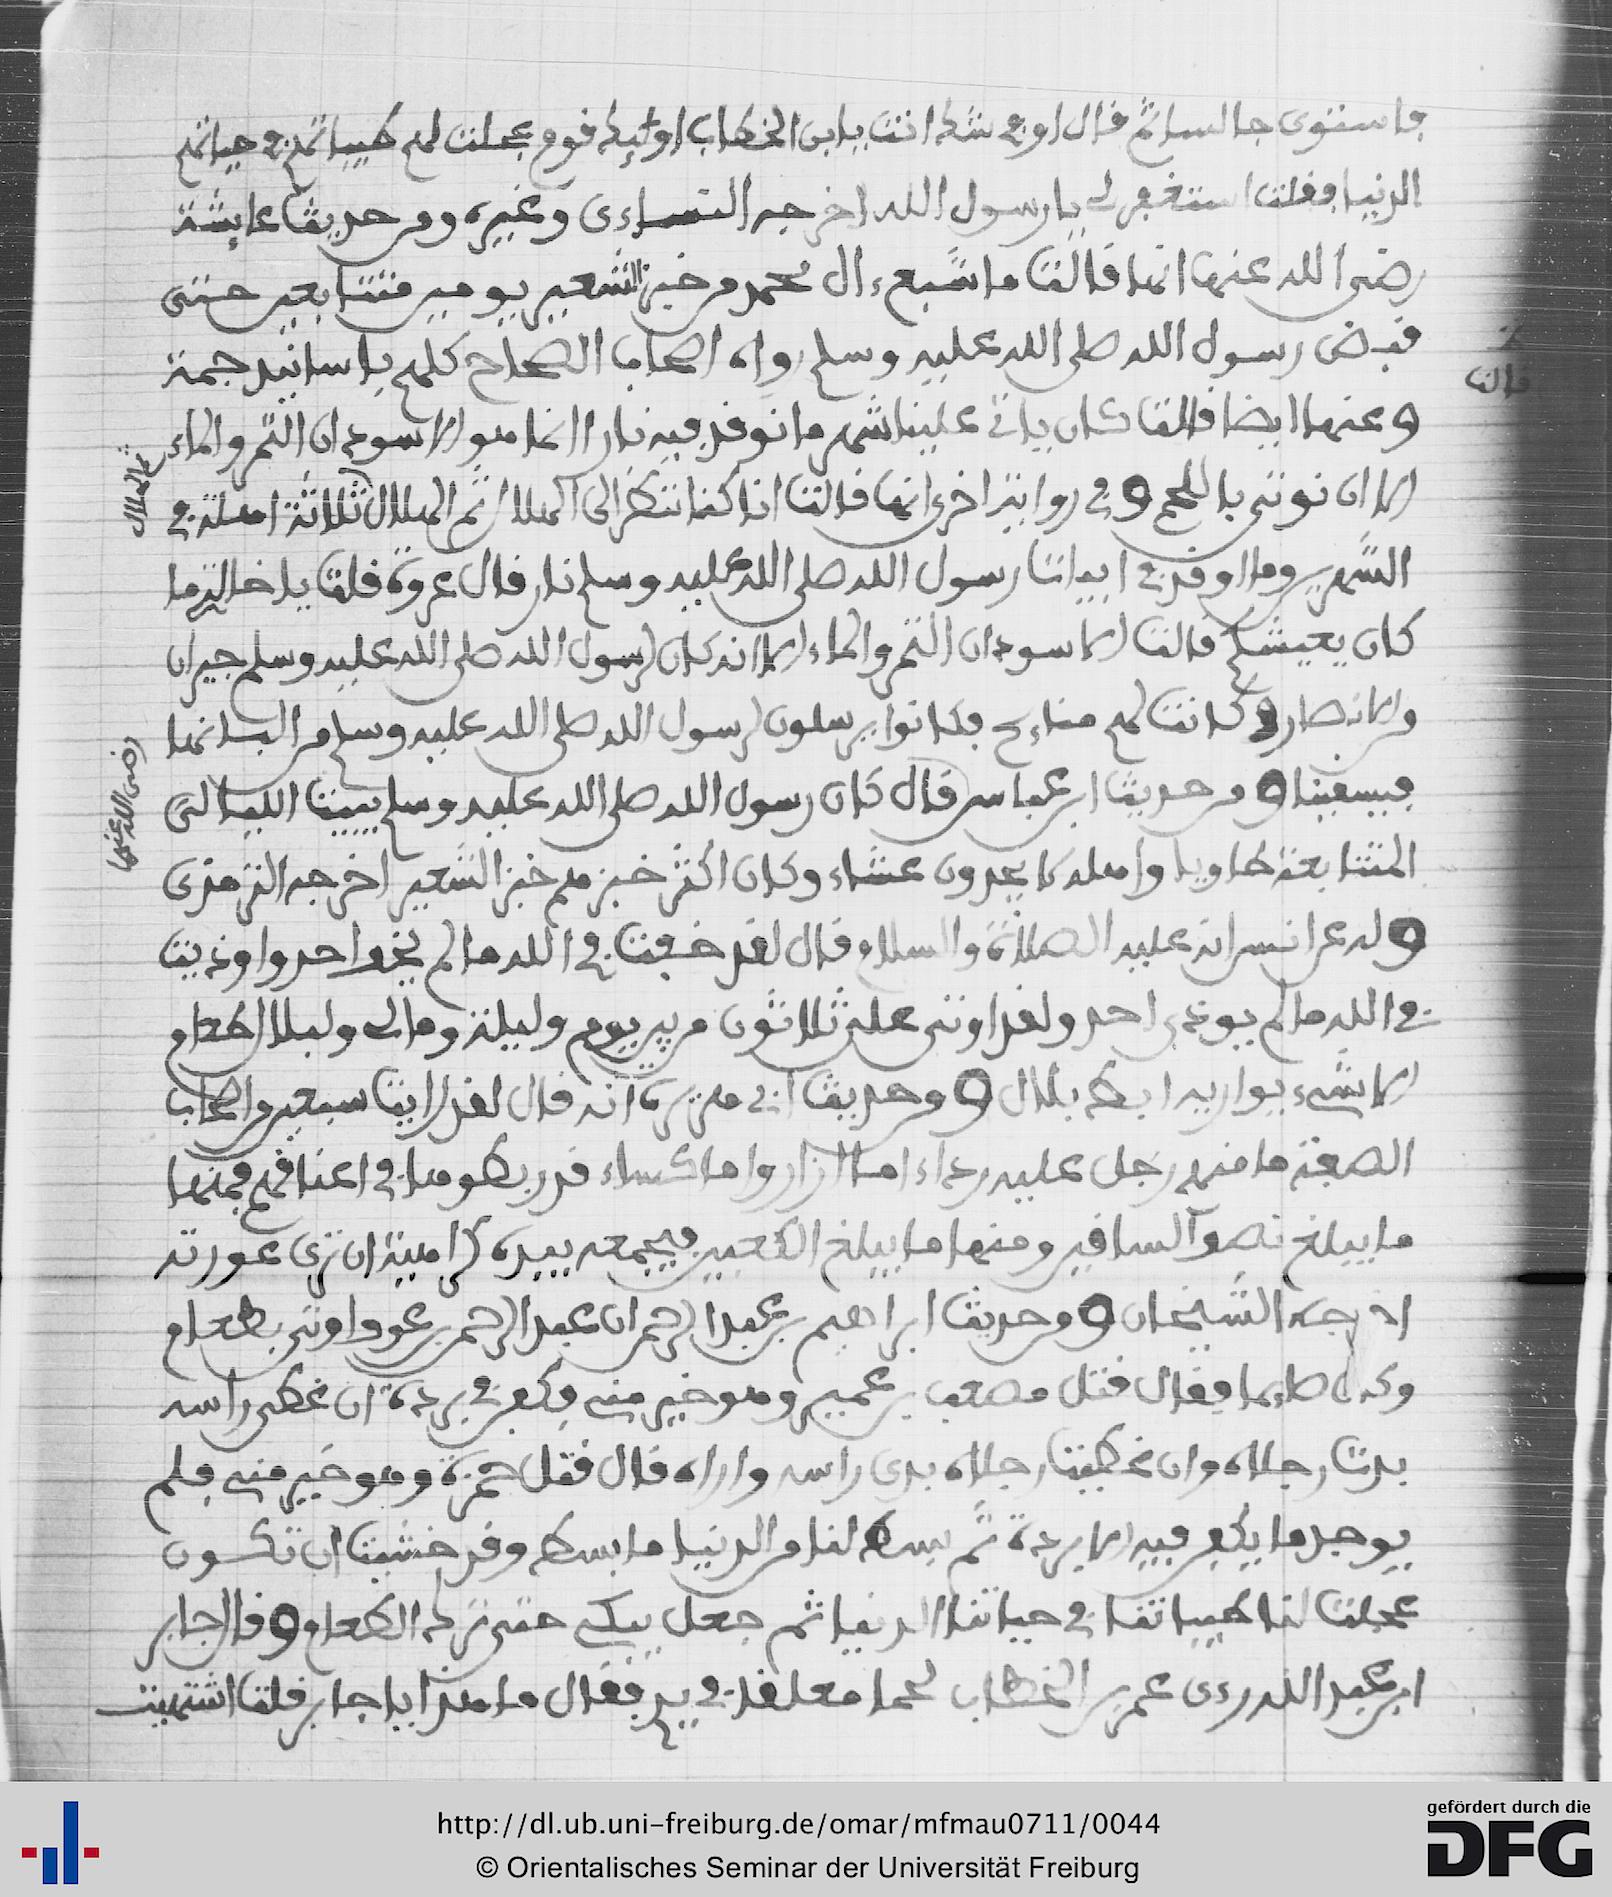 فاستوى جالسا ثم قال اوفي شك انت يابن الخطاب اوليك قوم عجلت لهم طيباتهم في حياتهم
الدنيا فقلت استغفر لي يا رسول الله اخرجه النساءى وغيره ومن حديث عايشة
رضى الله عنها انها قالت ما شبع ءال محمد من خبز الشعير يومين متتابعين حتى
قبض رسول الله صلى الله عليه وسلم رواه اصحاب الصحاح كلهم باسانيد جمة
قالت
وعنها ايضا قالت كان ياتى علينا شهر ما نوقد فيه نارا انما هو الاسودان التمر والماء
الا ان نوتى باللحم وفي رواية اخرى انها قالت انا كنا ننظر الى الهلال ثم الهلال ثلاثة اهلة في
ثم الهلال
الشهرين وما اوقد في ابيات رسول الله صلى الله عليه وسلم نار قال عروة قلت يا خالة ما
كان يعيشكم قالت الاسودان التمر والماء الا انه كان لرسول الله صلى الله عليه وسلم جيران
من الانصار وكانت لهم مناءح فكانوا يرسلون لرسول الله صلى الله عليه وسلم من البانها
فيسقينا ومن حديث ابن عباس قال كان رسول الله صلى الله عليه وسلم يبيت الليالى
رضى الله عنهما
المتتابعة طاويا واهله لا يجدون عشاء وكان اكثر خبزهم خبز الشعير اخرجه الترمذى
وله عن انس انه عليه الصلاة والسلام قال لقد خفت في الله ما لم يخف احد واوذيت
في الله ما لم يوذى احد ولقد اوتى علي ثلاثون من بين يوم وليلة ومالى ولبلال طعام
الا شىء يواريه ابط بلال ومن حديث ابى هريرة انه قال لقد رايت سبعين من اصحاب
الصفة ما منهم رجل عليه رداء اما ازار واما كساء قد ربطوها في اعناقهم فمنها
ما يبلغ نصف الساقين ومنها ما يبلغ الكعبين فيجمعه بيده كراهية ان ترى عورته
اخرجه الشيخان ومن حديث ابراهيم بن عبد الرحمن ان عبد الرحمن بن عوف اوتى بطعام
وكان صايما فقال قتل مصعب بن عمير وهو خير منى فكفن في بردة ان غطى راسه
بدت رجلاه وان غطيت رجلاه بدى راسه واراه قال قتل حمزة وهو خير منى فلم
يوجد ما يكفن فيه الا بردة ثم بسط لنا من الدنيا ما بسط وقد خشيت ان تكون
عجلت لنا طيباتنا في حياتنا الدنيا ثم جعل يبكى حتى ترك الطعام وقال جابر
ابن عبد الله رءى عمر بن الخطاب لحما معلقا في يدى فقال ما هذا يا جابر قلت اشتهيت
http://dl.ub.uni-freiburg.de/omar/mfmau0711/0044
© Orientalisches Seminar der Universität Freiburg
gefördert durch die
DFG